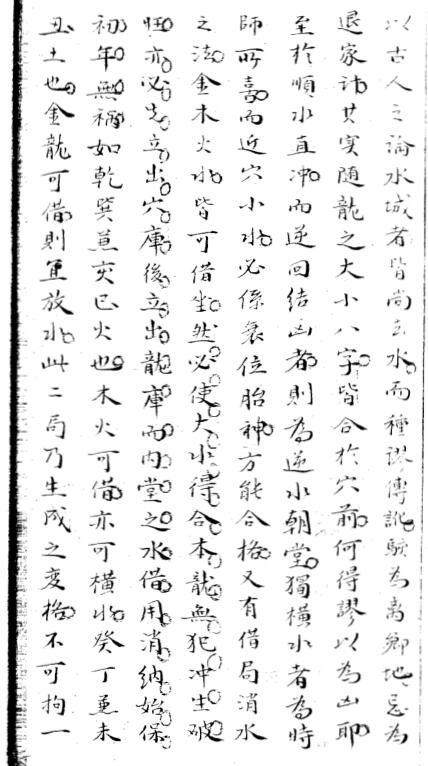 以古人之論水城者皆尚去水而種謬傳訛駭為离鄉地忌為
退家訣其実随龍之大小八字皆合於穴前何得謬以為凶耶
至於順水直冲而逆回結凶者則為逆水朝堂獨橫水者為時
師所喜而近穴小水必係衰位胎神方能合格又有借局消水
之法金木火水皆可借坐然必使大水得合本龍無犯冲生破
旺亦必先立出穴庫後立出龍庫而内堂之水借用消納始保
初年無禍如乾巽兼亥巳火也木火可借亦可橫水癸丁兼未
丑土也金龍可借則宜放水此二局乃生成之变格不可拘一